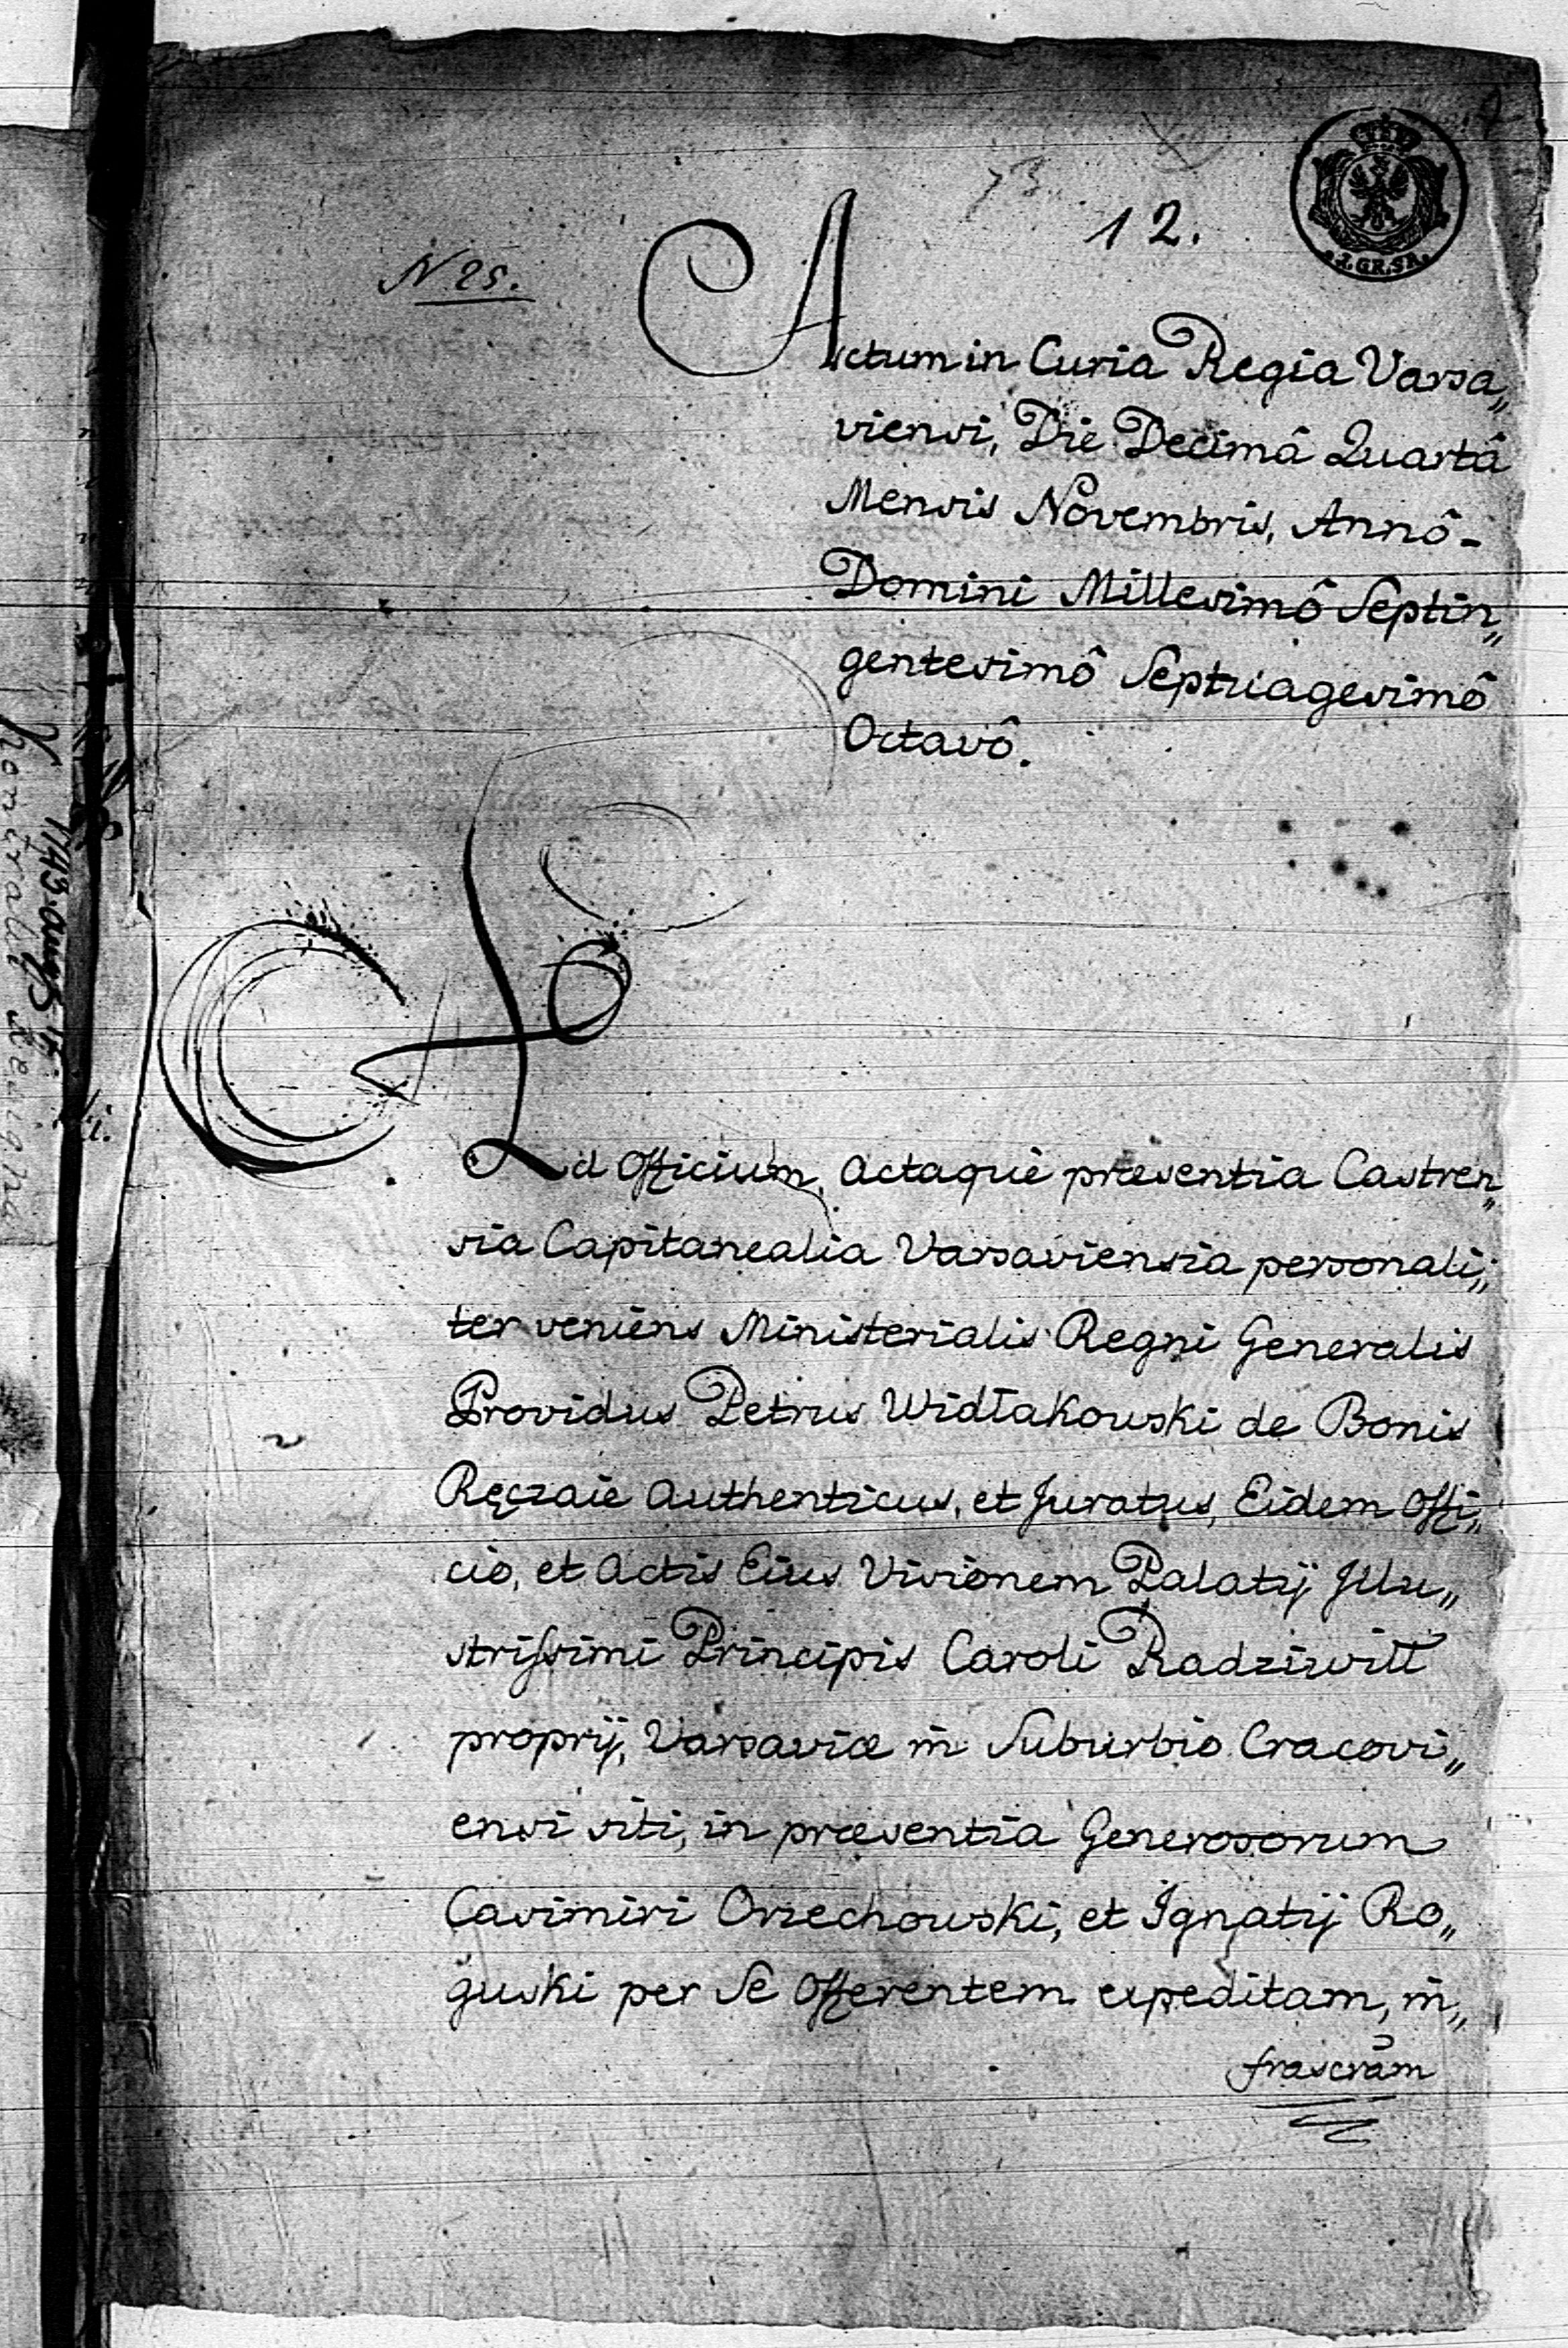 12.
N 25.
Actum in Curia Regia Varsa„
viensi, Die Decimâ Quartâ
Mensis Novembris, Annô-
Domini Millesimô Septin„
gentesimô Septuagesimô
Octavô.
Ad Officium, Actaque præsentia Castren„
sia Capitanealia Varsaviensia personali„
ter veniens Ministerialis Regni Generalis
Providus Petrus Widłakowski de Bonis
Ręczaie Authenticus, et Juratus, Eidem Offi„
cio, et Actis Eius Visionem Palatij Illu„
strissimi Principis Caroli Radziwiłł
proprij, Varsaviæ in Suburbio Cracovi„
ensi siti, in præsentia Generosorum
Casimiri Orzechowski, et Ignatij Ro„
guski per Se Offerentem expeditam, in„
frascrãm